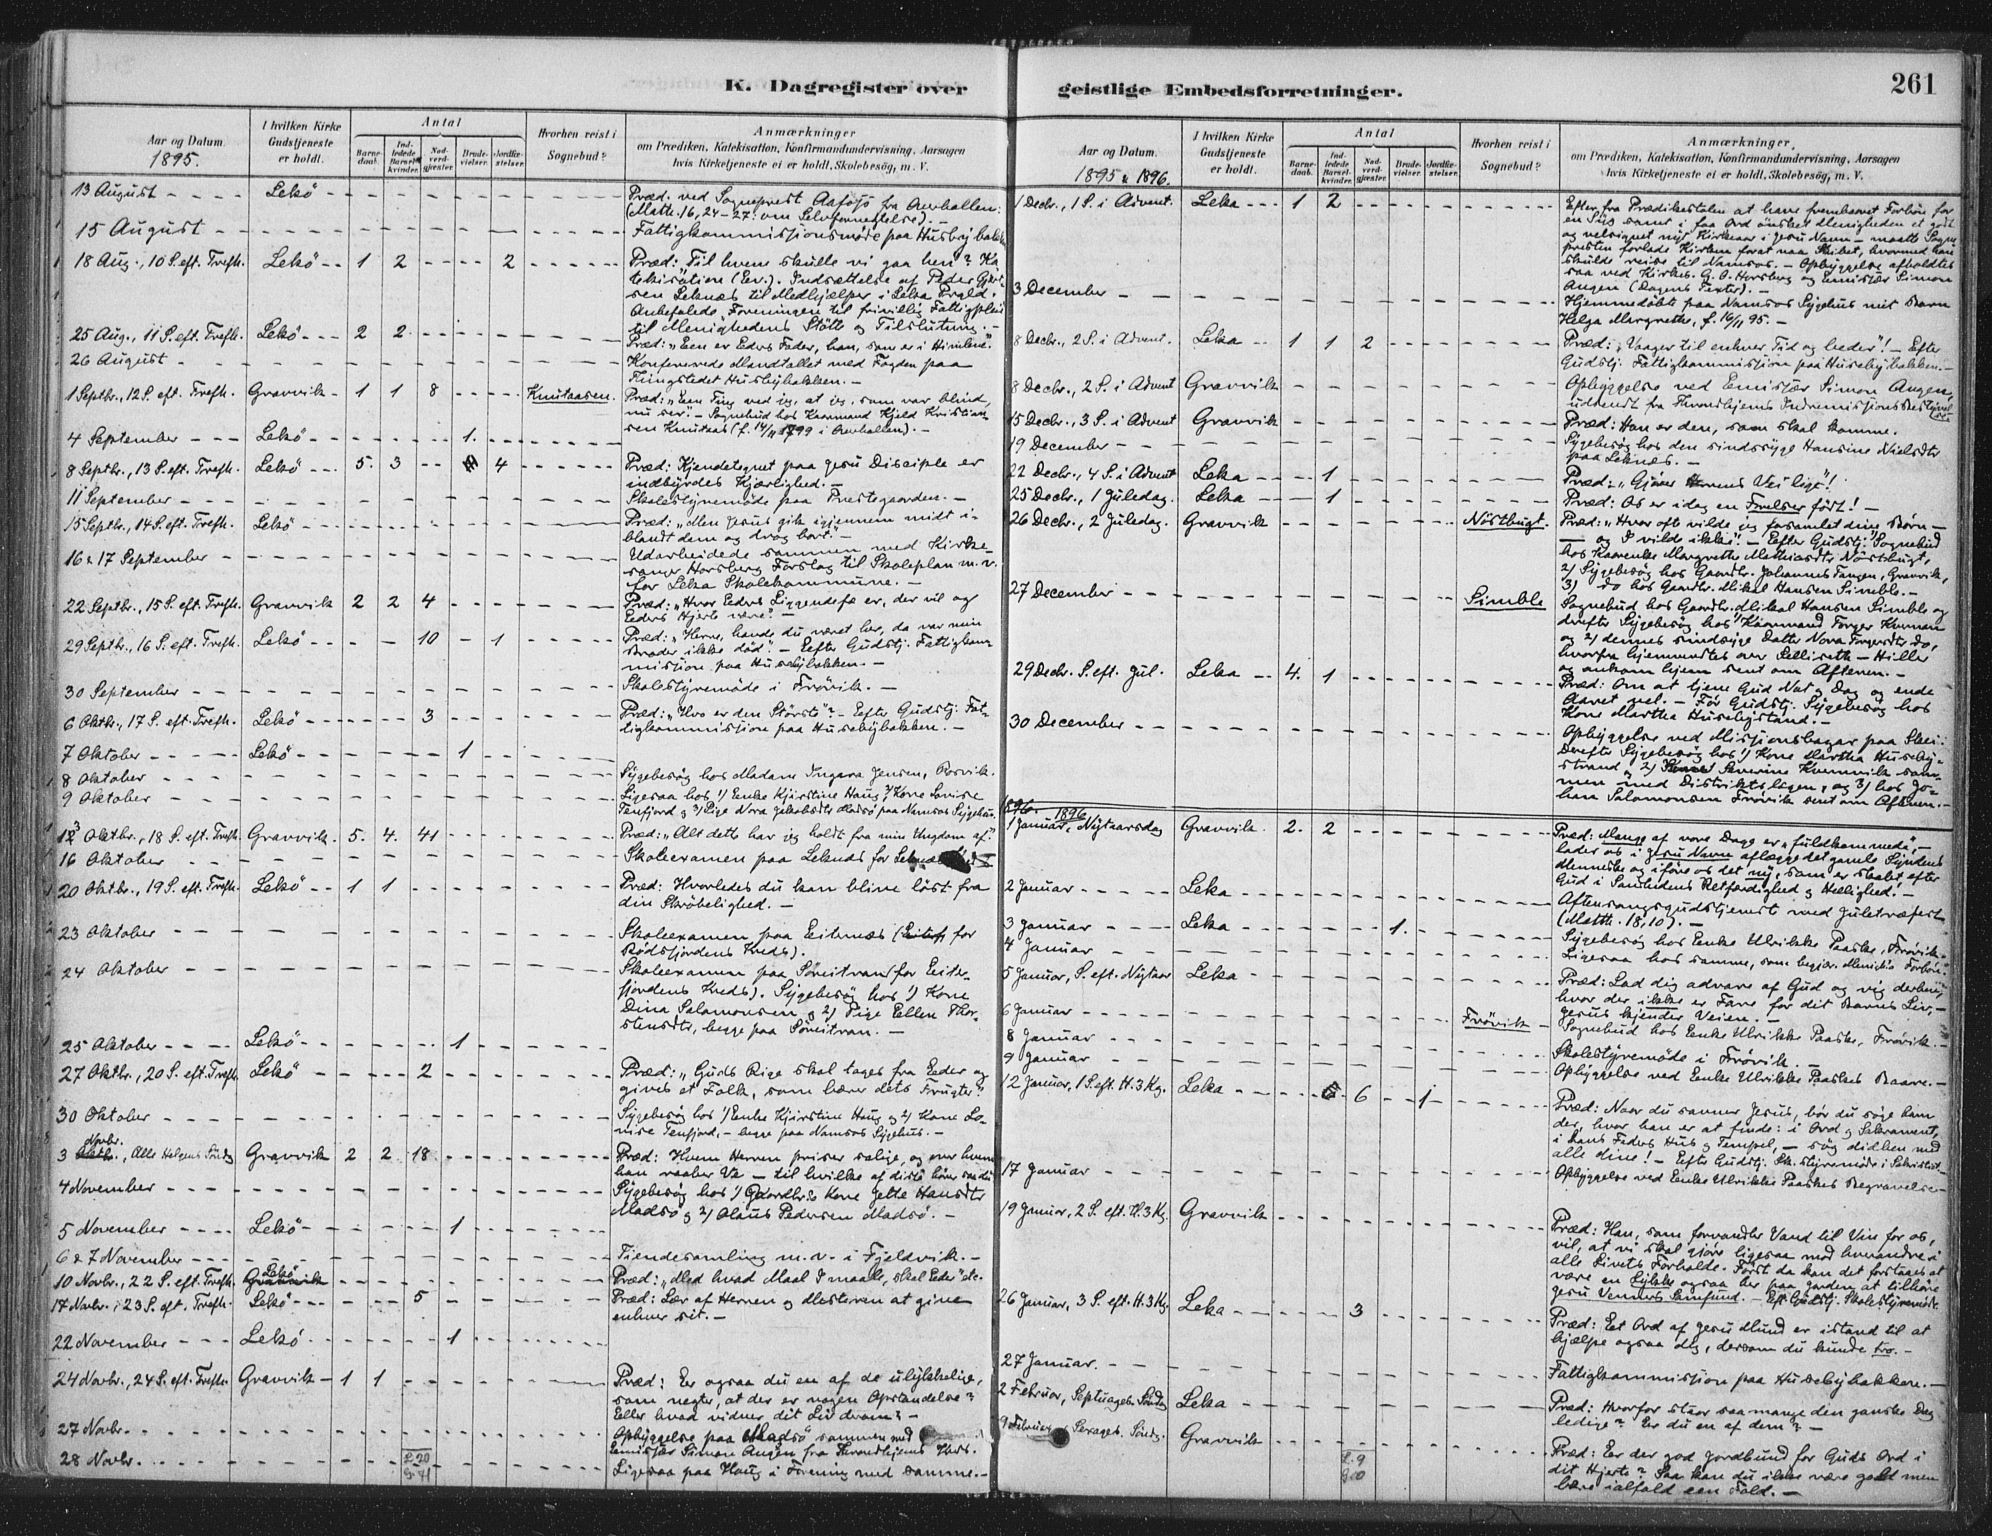 K. Dagregister over
Aar og Datum.
1895.
I hvilken Kirke Gudstjeneste er holdt.
Antal
Barnedaab.
Indledede Barselkvinder.
Nadverdgjester.
Brudevielser.
Jordfæstelser.
Hvorhen reist i Sognebud?
Anmærkninger
om Prædiken, Katekisation, Konfirmandundervisning, Aarsagen hvis Kirketjeneste ei er holdt, Skolebesøg, m. V.
13 August Lekø Præd. ved Sogneprest Aafløjs fra
(Matth. 16, 24-27: om Selvfornegtelse). -
15 August Fattigkommissjonsmøde paa Husbybakken
18 Aug., 10 S. eft. Trefh. Lekø 1 2 2 Præd: Til hvem skulle vi gaa hen? Ka
tekisation (Ev.). Indsættelse af Peder
sen Leknæs til Medhjælper i Leka Prgld.
Anbefalede „Foreningen til frivillig Fattigpleie"
til Menighedens Støtte og Tilslutning. -
25 Aug., 11 S. eft. Trefh. Lekø 2 2 Præd: „Een er Eders Fader, han, som er i Himlene".
26 August Konfererede Mandtallet med Fogden paa
Thingstedet Husbybakken. -
1 Septbr., 12 S. eft. Trefh. Gravvik 1 1 8 Knutaasen. Præd: „Een Ting ved jeg, at jeg, som var blind,
nu ser". - Sognebud hos Kaarmand Kjeld Kristian
sen Knutaas (f. 14/11 1799 i
4 September Lekø 1.
8 Septbr., 13 S. eft. Trefh. Lekø 5. 3 4 Præd: Kjendetegnet paa Jesu Disciple er
indbyrdes Kjærlighed. -
11 September Skolestyremøde paa Prestegaarden. -
15 Septbr., 14 S. eft. Trefh. Lekø Præd: „Men Jesus gik igjennem midt i-
blandt dem og drog bort". -
16 & 17 September Udarbeidede sammen med Kirke-
sanger Horsberg Forslag til Skoleplan m. v.
for Leka Skolekommune. -
22 Septbr., 15 S. eft. Trefh. Gravvik 2 2 4 Præd: „Hvor Eders Liggendefæ er, der vil og
Eders Hjerte være". -
29 Septbr., 16 S. eft. Trefh. Lekø 10 1 Præd: „Herre, havde du været her, da var min
Broder ikke død". - Efter Gudstj. Fattigkom
missjon paa Husebybakken. -
30 September Skolestyremøde i Frøvik. -
6 Oktbr., 17 S. eft. Trefh. Lekø 3 Præd: „Hvo er den Største"? - Efter Gudstj. Fat-
tigkommissjon paa Husebybakken. -
7 Oktober Lekø 1
8 Oktober Sygebesøg hos Madam Ingara Jensen, Rosvik.
9 Oktober Ligesaa hos 1) Enke Kjerstine Haug 2) Kone Lovise
Tenfjord & 3) Pige Nora Jakobsdtr Madsø paa Namsos Sygehus.
13 Oktbr., 18 S. eft. Trefh. Gravvik 5. 4. 41 Præd: „Alt dette har jeg holdt fra min Ungdom af".
16 Oktober Skoleexamen paa Leknæs for
20 Oktbr., 19 S. eft. Trefh. Lekø 1 1 Præd: Hvorledes du kan blive løst fra
din Skrøbelighed. -
23 Oktober Skoleexamen paa Eiternæs for
Bødsfjordens Kreds).
24 Oktober Skoleexamen paa Søreitran (for Eiter-
fjordens Kreds). Sygebesøg hos 1) Kone
Dina Salamonsen & 2) Pige Ellen Thor-
stensdtr, begge paa Søreitran. -
25 Oktober Lekø 1
27 Oktbr., 20 S. eft. Trefh. Lekø 2 Præd: „Guds Rige skal tages fra Eder og
gives et Folk, som bærer dets Frugter".
30 Oktober Sygebesøg hos 1) Enke Kjerstine Haug & 2) Kone Lo-
vise Tenfjord, - begge paa Namsos Sygehus. -
3 Novbr., Alle Helgens Sønd. Gravvik 2 2 18 Præd: Hvem Herren priser salige, og over hvem
han raaber Ve - til hvilke af disse hører saa du
4 November Sygebesøg hos 1) Gaardbr.s Kone Jette Hansdtr
Madsø & 2) Olaus Pedersen Madsø. -
5 November Lekø 1
6 & 7 November Tiendesamling m. v. i Fjeldvik. -
10 Novbr., 22 S. eft. Trefh. Lekø Præd: „Med hvad Maal I maale, skal Eder" etc.
17 Novbr., 23 S. eft. Trefh. Lekø 5 Præd: Lær af Herren og Mesteren at give
enhver sit. -
22 November Lekø 1
24 Novbr., 24 S. eft. Trefh. Gravvik 1 1 Præd: Er ogsaa du en af de ulykkelige,
som negter, at der er nogen Opstandelse?
Eller hvad vidner dit Liv derom? -
27 Novbr. Opbyggelse paa Madsø sammen med
Emissær Simon Angen fra Throndhjems Kreds.
28 Novbr. Ligesaa paa Haug i Forening med samme. -
geistlige Embedsforretninger.
261
Aar og Datum.
1895 & 1896.
I hvilken Kirke Gudstjeneste er holdt.
Antal
Barnedaab.
Indledede Barselkvinder.
Nadverdgjester.
Brudevielser.
Jordfæstelser.
Hvorhen reist i Sognebud?
Anmærkninger,
om Prædiken, Katekisation, Konfirmandundervisning, Aarsagen hvis Kirketjeneste ei er holdt, Skolebesøg, m. V.
1 Decbr., 1 S. i Advent. Leka 1 2 Efter fra Prædikestolen at have frembaaret Forbøn for
en Syg samt i faa Ord ønsket Menigheden et godt
og velsignet nyt Kirkeaar i Jesu Navn - maatte Sogne
presten forlade Kirken forat naa Skibet, hvormed han
skulde reise til Namsos. - Opbyggelse afholdtes
saa ved Kirkes. G. O. Horsberg og Emissær Simon
Angen (Dagens Texter). -
3 December Hjemmedøbte paa Namsos Sygehus mit Barn
Helga Margrethe, f. 16/11 95. -
8 Decbr., 2 S. i Advent. Leka 1 1 2 Præd: „Vaager til enhver Tid og beder"! - Efter
Gudstj. Fattigkommissjon paa Husebybakken. -
8 Decbr., 2 S. i Advent Gravvik Opbyggelse ved Emissær Simon Angen,
udsendt fra Throndhjems Indremissjons Bestyrelse
15 Decbr., 3 S. i Advent Gravvik Præd: Han er den, som skal komme.
19 December Sygebesøg hos den sindssyge Hansine Nielsdtr
paa Leknes. -
22 Decbr., 4 S. i Advent Leka 1 Præd: „Gjører Herrens Vei lige"!
25 Decbr., 1 Juledag. Leka 1 Præd: Os er idag en Frelser født! -
26 Decbr., 2 Juledag. Gravvik Nøstbugt. Præd: „Hvor oft vilde jeg forsamlet dine Børn -
- og I vilde ikke". - Efter Gudstj. 1) Sognebud
hos Kaarenke Margrethe Mathiasdtr Nøstbugt,
2) Sygebesøg hos Gaardbr. Johannes Tangen, Gravvik,
3) do hos Gaardbr. Mikal Hansen Simble. -
27 December Simble Sognebud hos Gaardbr. Mikal Hansen Simble og
derefter Sygebesøg hos 1) Kaarmand Torger
og 2) dennes sindssyge Datter Nora Torgersdtr do,
hvorfra hjemrestes over Sellisetb - Hiller
og ankom hjem sent om Aftenen. -
29 Decbr. S. eft. Jul. Leka 4. 1 Præd: Om at tjene Gud Nat og Dag og ende
Aaret vel. - Før Gudstj. Sygebesøg hos
Kone Martha Husebystrand. -
30 December Opbyggelse ved Missjonsbazar paa Skei.
Derefter Sygebesøg hos 1) Kone Martha Huseby-
strand & 2) Severine Kvernvik sam-
men med Distriktslægen, & 3) hos Jo-
han Salomonsen Frøvik sent om Aftenen. -
1896. 1896
1 Januar, Nytaarsdag Gravvik. 2. 2 Præd: Mange af vore Dage er „fuldkommede", -
lader os i Jesu Navn aflægge det gamle Syndens
Menneske og iføre os det ny, som er skabt efter
Gud i Sandhedens Retfærdighed og Hellighed! -
2 Januar Leka Aftensangsgudstjenest med Juletræfest
(Matth. 18, 10). -
3 Januar Leka 1. Sygebesøg hos Enke Ulrikke Paaske, Frøvik. -
4 Januar Ligesaa hos samme, som begjær. Menigh's Forbøn. -
5 Januar, S. eft. Nytaar Leka Præd: Lad dig advare af Gud og vig derhen,
hvor der ikke er Fare for dit Barns Liv, -
Jesus kjender Veien. -
6 Januar Frøvik Sognebud hos Enke Ulrikke Paaske, Frøvik. -
8 Januar Skolestyremøde i Frøvik. -
9 Januar Opbyggelse ved Enke Ulrikke Paaskes Baare. -
12 Januar, 1 S. eft. H. 3 Kg. Leka 6 1 Præd: Naar du savner Jesus, bør du søge ham
der, hvor han er at finde: i Ord & Sakrament,
i hans Faders Hus & Tempel, - søg didhen med
alle dine! - Efter Gudstj. Sk. styremøde i Sakristiet. -
17 Januar Opbyggelse ved Enke Ulrikke Paaskes Begravelse. -
19 Januar, 2 S. eft. H. 3 Kg. Gravvik Præd: Han, som forvandler Vand til Vin for os,
vil, at vi skal gjøre ligesaa mod hverandre i
alle Livets Forholde. Først da kan det forstaaes at
være en Lykke ogsaa her paa Jorden at tilhøre
Jesu Venners Samfund. - Eft. Gudstj. Skolestyremøde
26 Januar, 3 S. eft. H. 3 Kg. Leka 3 Præd: Eet Ord af Jesu Mund er istand til at
hjælpe ogsaa dig, dersom du kunde tro. -
27 Januar. Fattigkommissjon paa Husebybakken. -
2 Februar, Septuages. Sønd. Leka Præd: Hvorfor staar saamange den ganske Dag
ledige? Er du en af dem? -
9 Februar Sexages. Sønd. Gravvik Præd: Er der god Jordbund for Guds Ord i
dit Hjerte? Saa kan du ikke være god men
bære ialfald een Fold. -